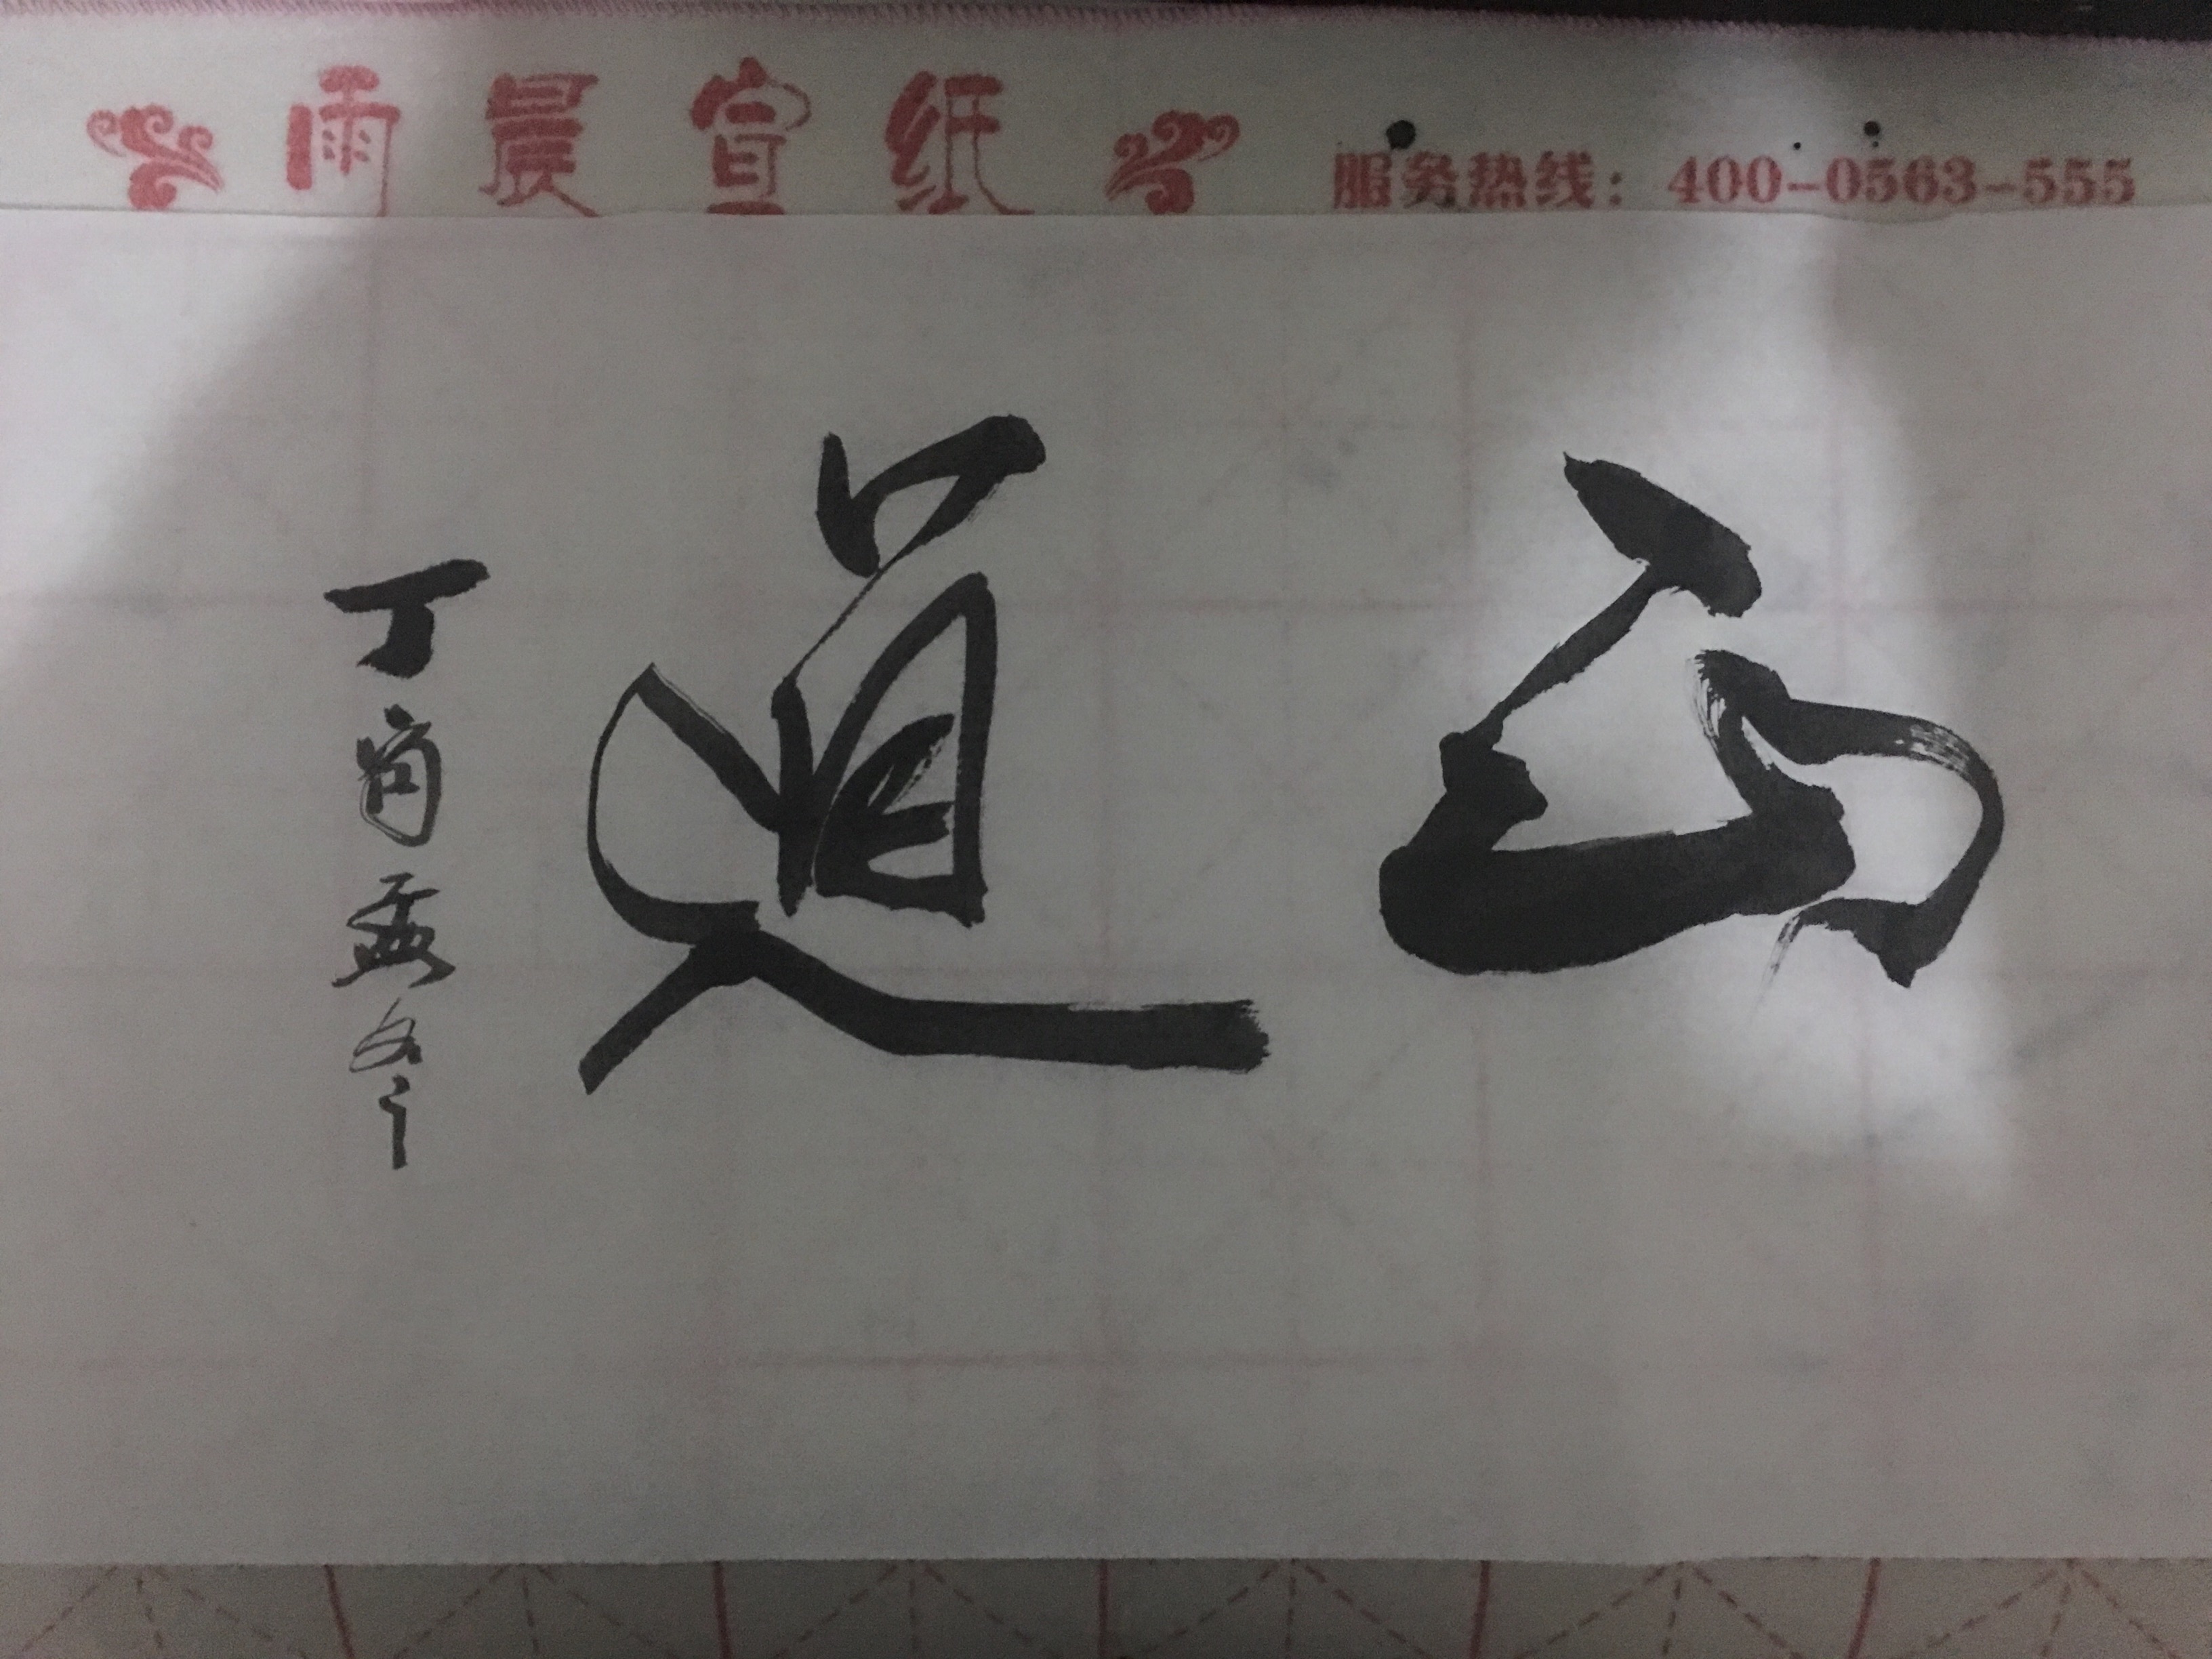 雨晨宣纸 服务热线：400-0563-555
道
丁酉孟冬